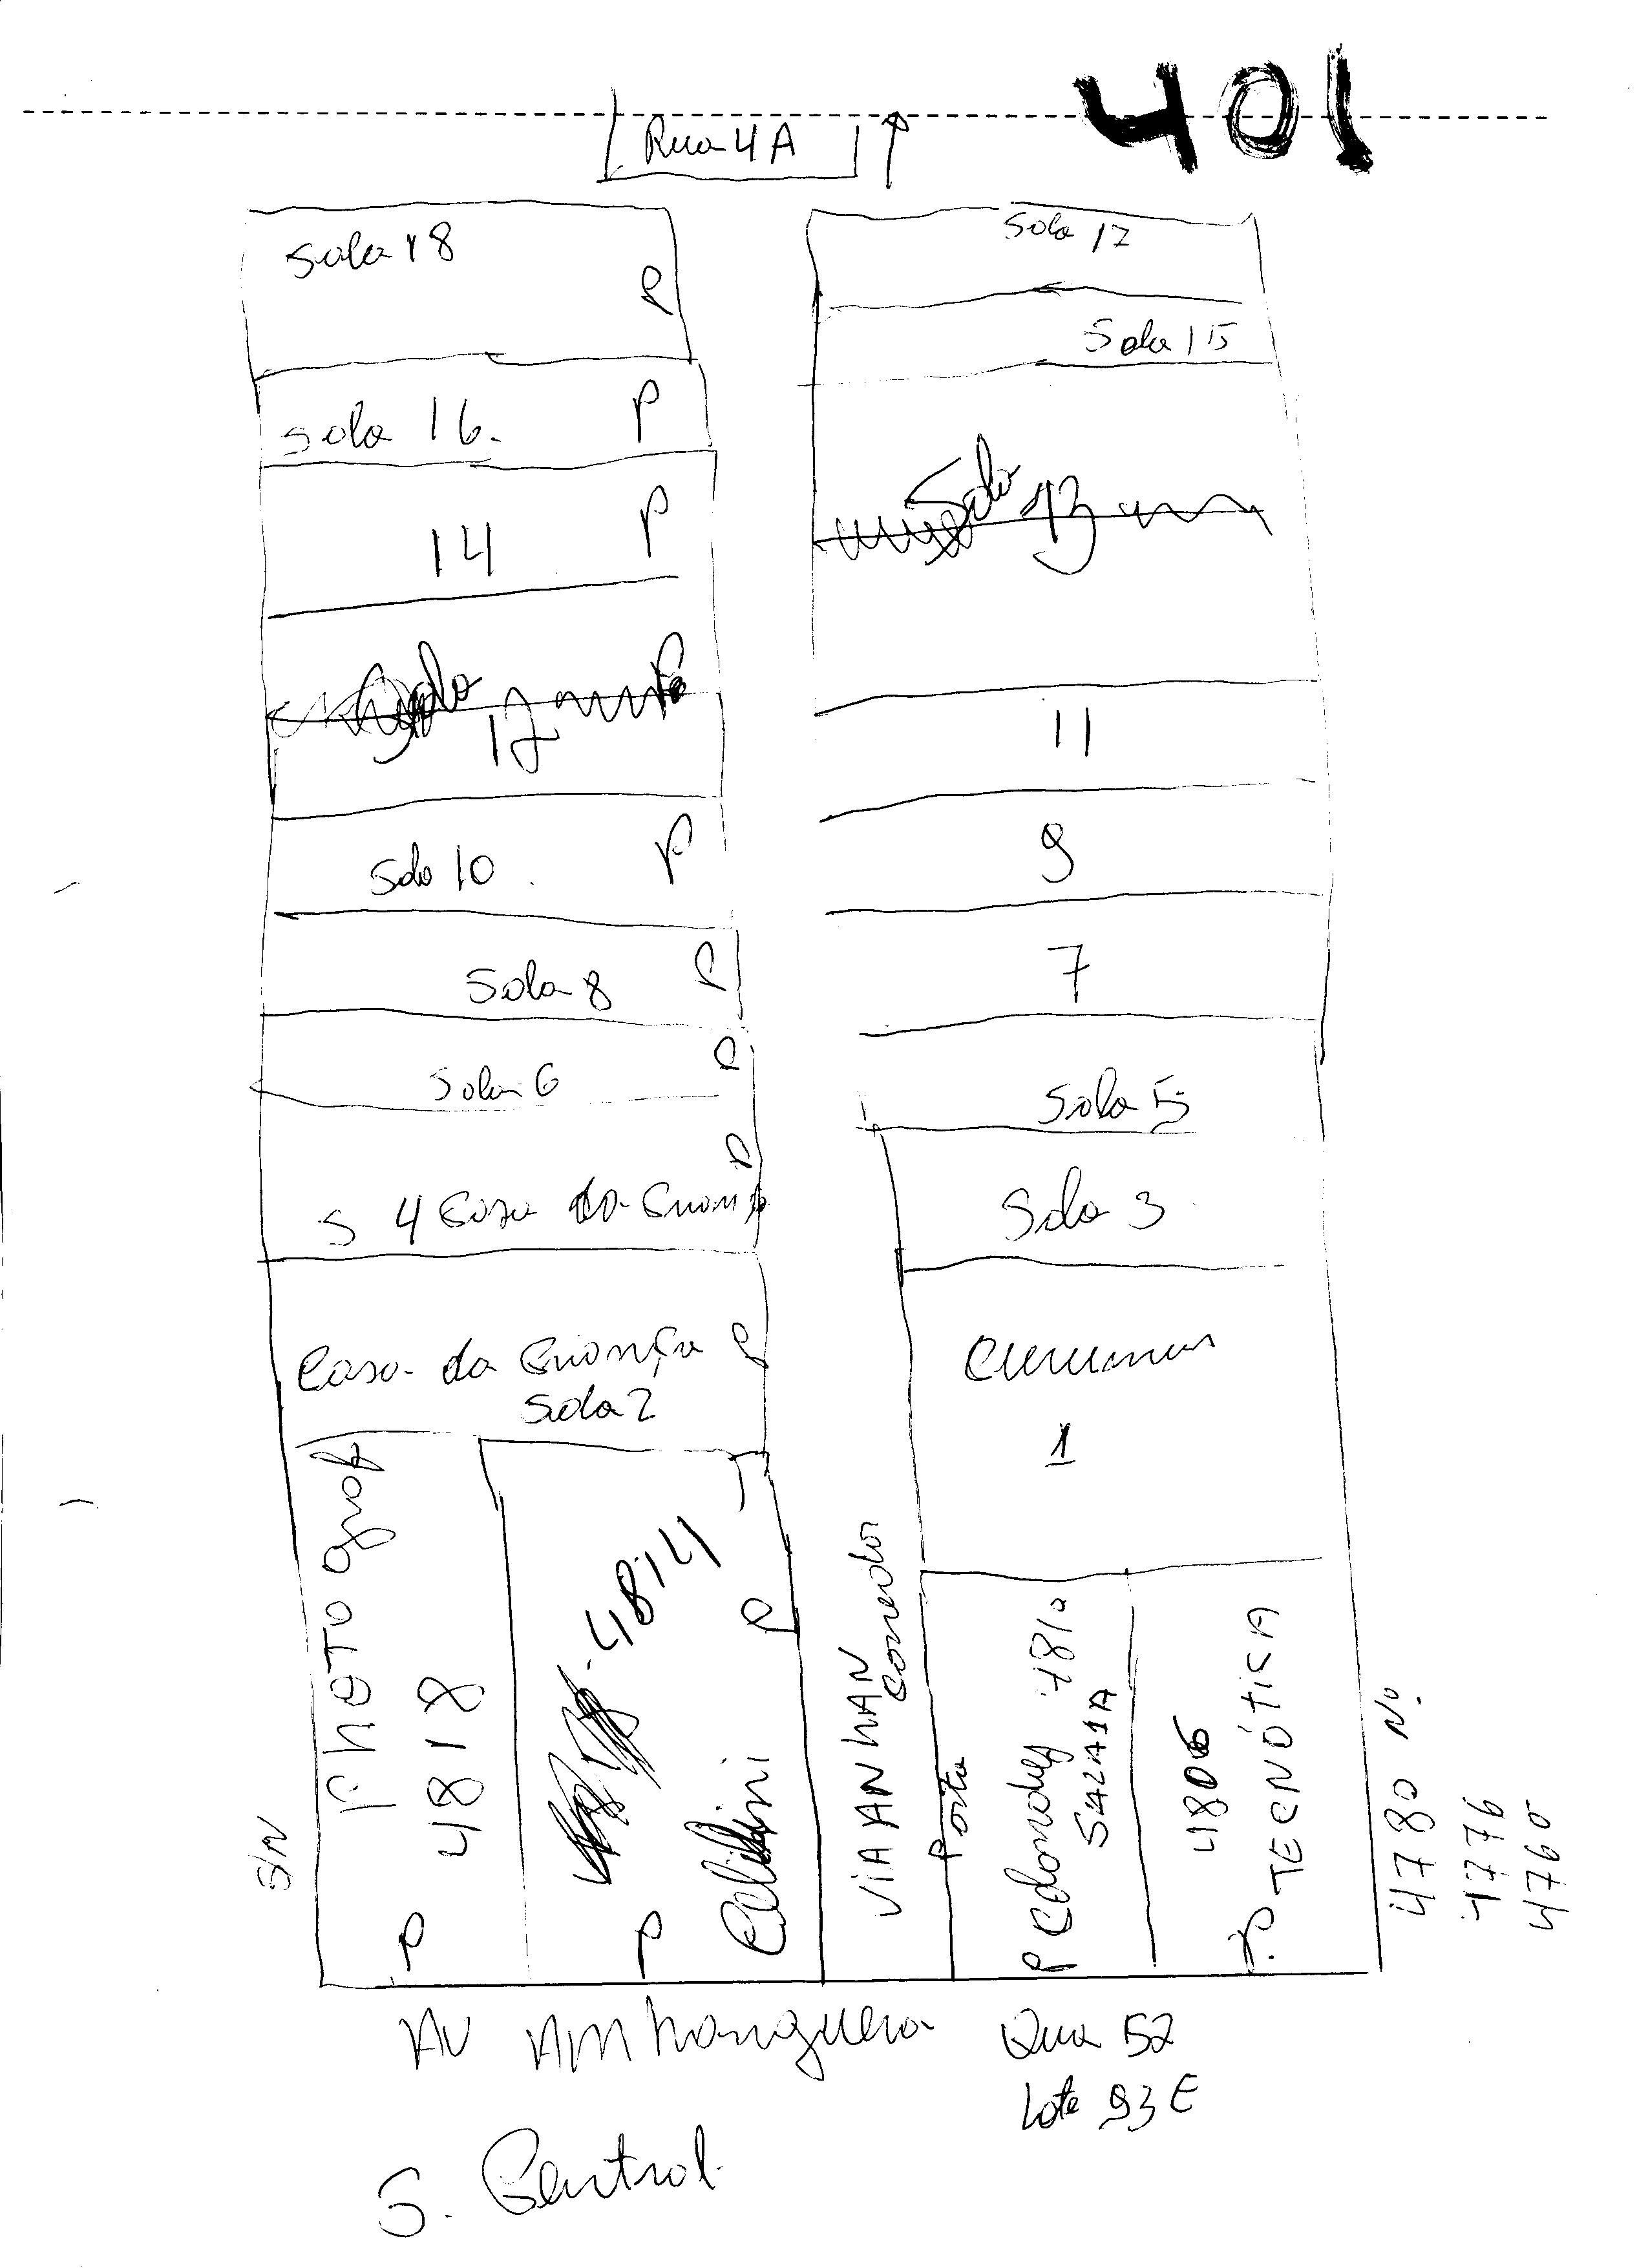 401
Rua 4A
Sala 18
P
Sala 17
Sala 15
Sala 16.
P
14
P
Sala 13
Sala
12
P
11
Sala 10
P
9
Sala 8
P
7
Sala 6
P
Sala 5
S 4 Casa da
P
Sala 3
Casa da Criança
Sala 2
P
1
PHOTO
4818
P
S/N
4814
P
P
VIA ANHAN
Corredor
Porta
P
4810
SALA 1A
4806
P TECNÓTICA
4780 Nº
4776
4760
AV Anhanguera
Qua 52
Lote 93 E
S. Central